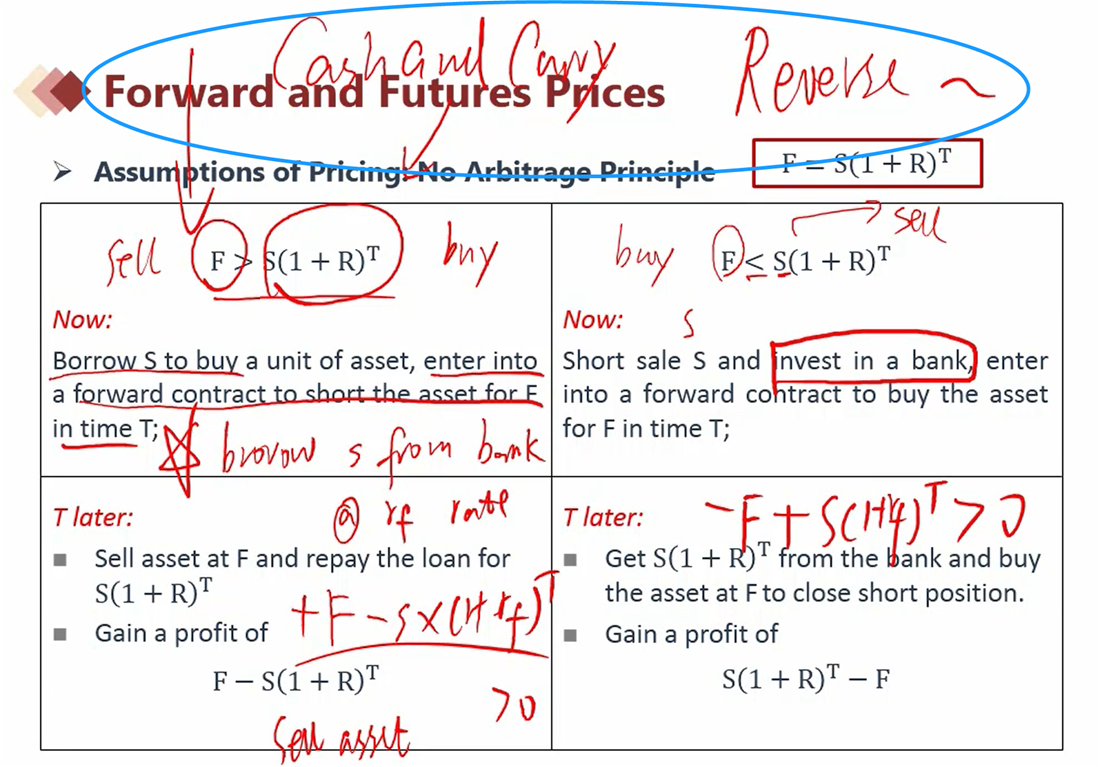 Cash and Carry Reverse ~
Forward and Futures Prices
Assumptions of Pricing: No Arbitrage Principle
F = S(1 + R)^T
sell F > S(1 + R)^T buy
Now:
Borrow S to buy a unit of asset, enter into
a forward contract to short the asset for F
in time T;
brorow s from bank
@ rf rate
T later:
■ Sell asset at F and repay the loan for
S(1 + R)^T
+F - S×(1+rf)^T
■ Gain a profit of
F − S(1 + R)^T
>0
Sell asset
sell
buy F < S(1 + R)^T
Now:
S
Short sale S and invest in a bank, enter
into a forward contract to buy the asset
for F in time T;
T later:
-F + S(1+rf)^T > 0
■ Get S(1 + R)^T from the bank and buy
the asset at F to close short position.
■ Gain a profit of
S(1 + R)^T − F